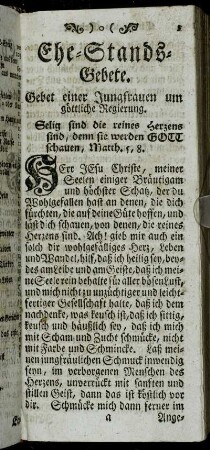 )o( 3
Ehe-Stands-
Gebete.
Gebet einer Jungfrauen um
göttliche Regierung.
Selig sind die reines Herzens
sind, denn sie werden GOTT
schauen, Matth. 5, 8.
HErr JEsu Christe, meiner
Seelen einiger Bräutigam
und höchster Schatz, der du
Wohlgefallen hast an denen, die dich
fürchten, die auf deine Güte hoffen, und
läst dich schauen, von denen, die reines
Herzens sind. Ach! gieb mir auch ein
solch dir wohlgefälliges Herz, Leben
und Wandel, hilf, daß ich heilig sey, bey-
des am Leibe und am Geiste, daß ich mei-
ne Seele rein behalte für aller bösen Lust,
und mich nicht zu unzüchtiger und leicht-
fertiger Gesellschaft halte, daß ich dem
nachdenke, was keusch ist, daß ich sittig,
keusch und häußlich sey, daß ich mich
mit Scham und Zucht schmücke, nicht
mit Farbe und Schmincke. Laß mei-
nen jungfräulichen Schmuck inwendig
seyn, im verborgenen Menschen des
Herzens, unverrückt mit sanften und
stillen Geist, dann das ist köstlich vor
dir. Schmücke mich dann ferner im
a Ange-